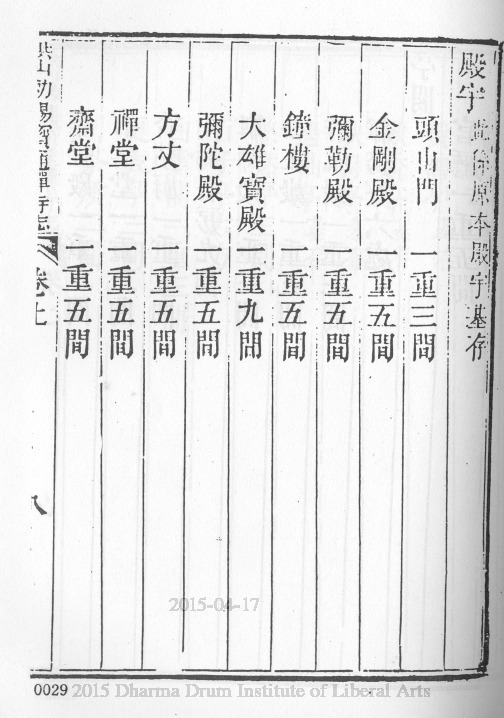 殿宇 原本殿宇基存
頭山門 一重三間
金剛殿 一重五間
彌勒殿 一重五間
鐘樓 一重五間
大雄寶殿 一重九間
彌陀殿 一重五間
方丈 一重五間
禪堂 一重五間
齋堂 一重五間
山勅賜寶通禪寺志 卷上 八
2015-04-17
0029 2015 Dharma Drum Institute of Liberal Arts